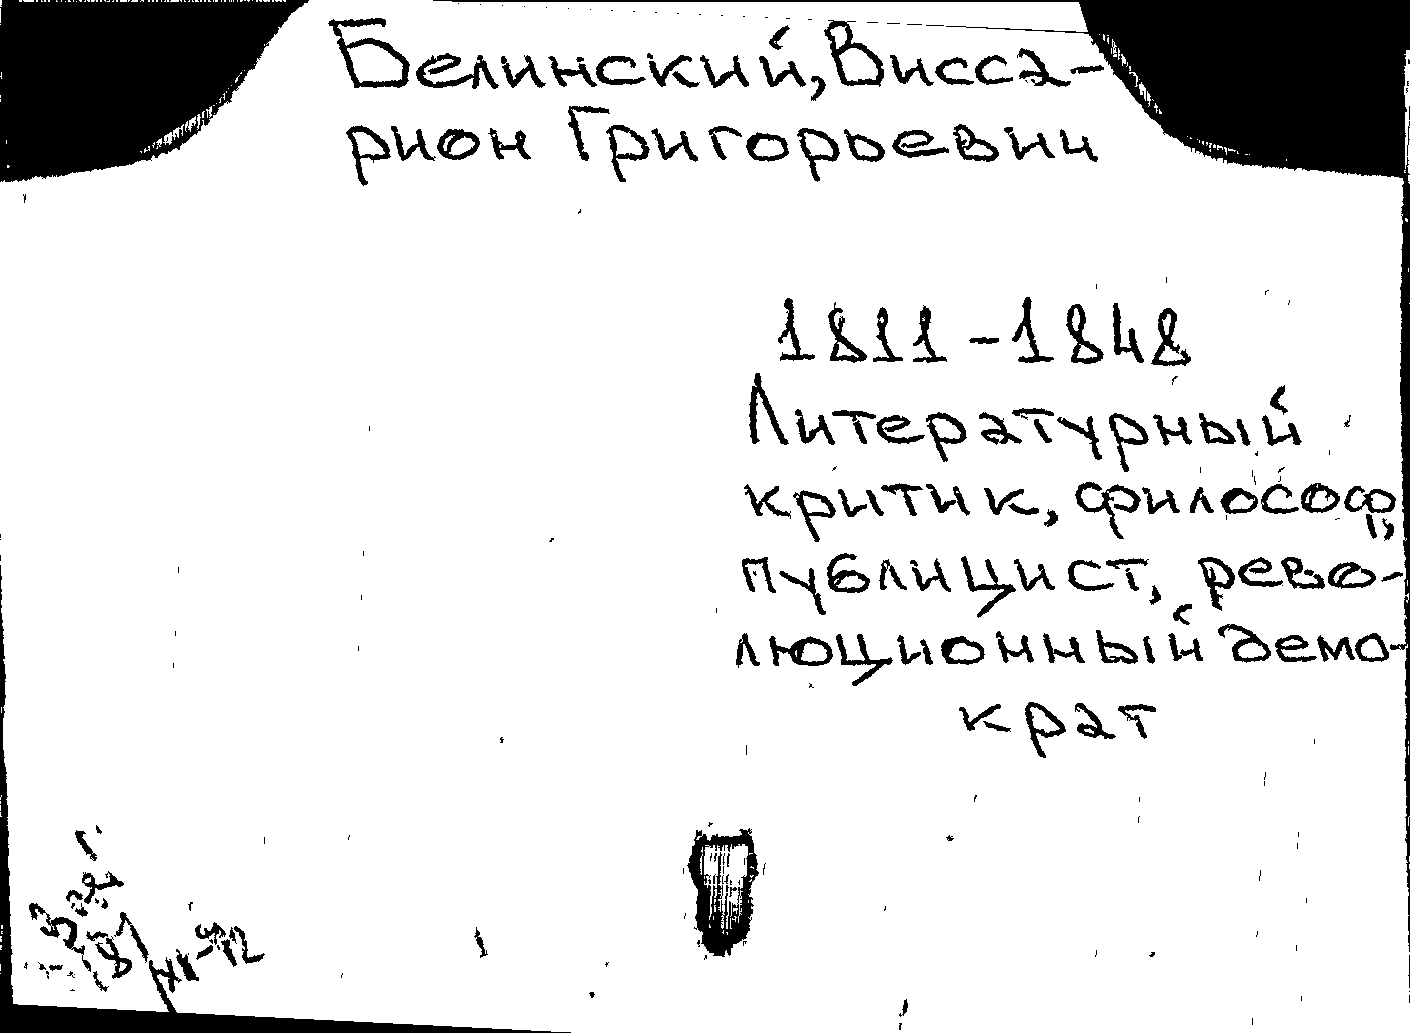 Белинский, Висса-
рион Григорьевич
1811-1848
Литературный
критик, философ,
публицист, рево-
люционный демо-
крат